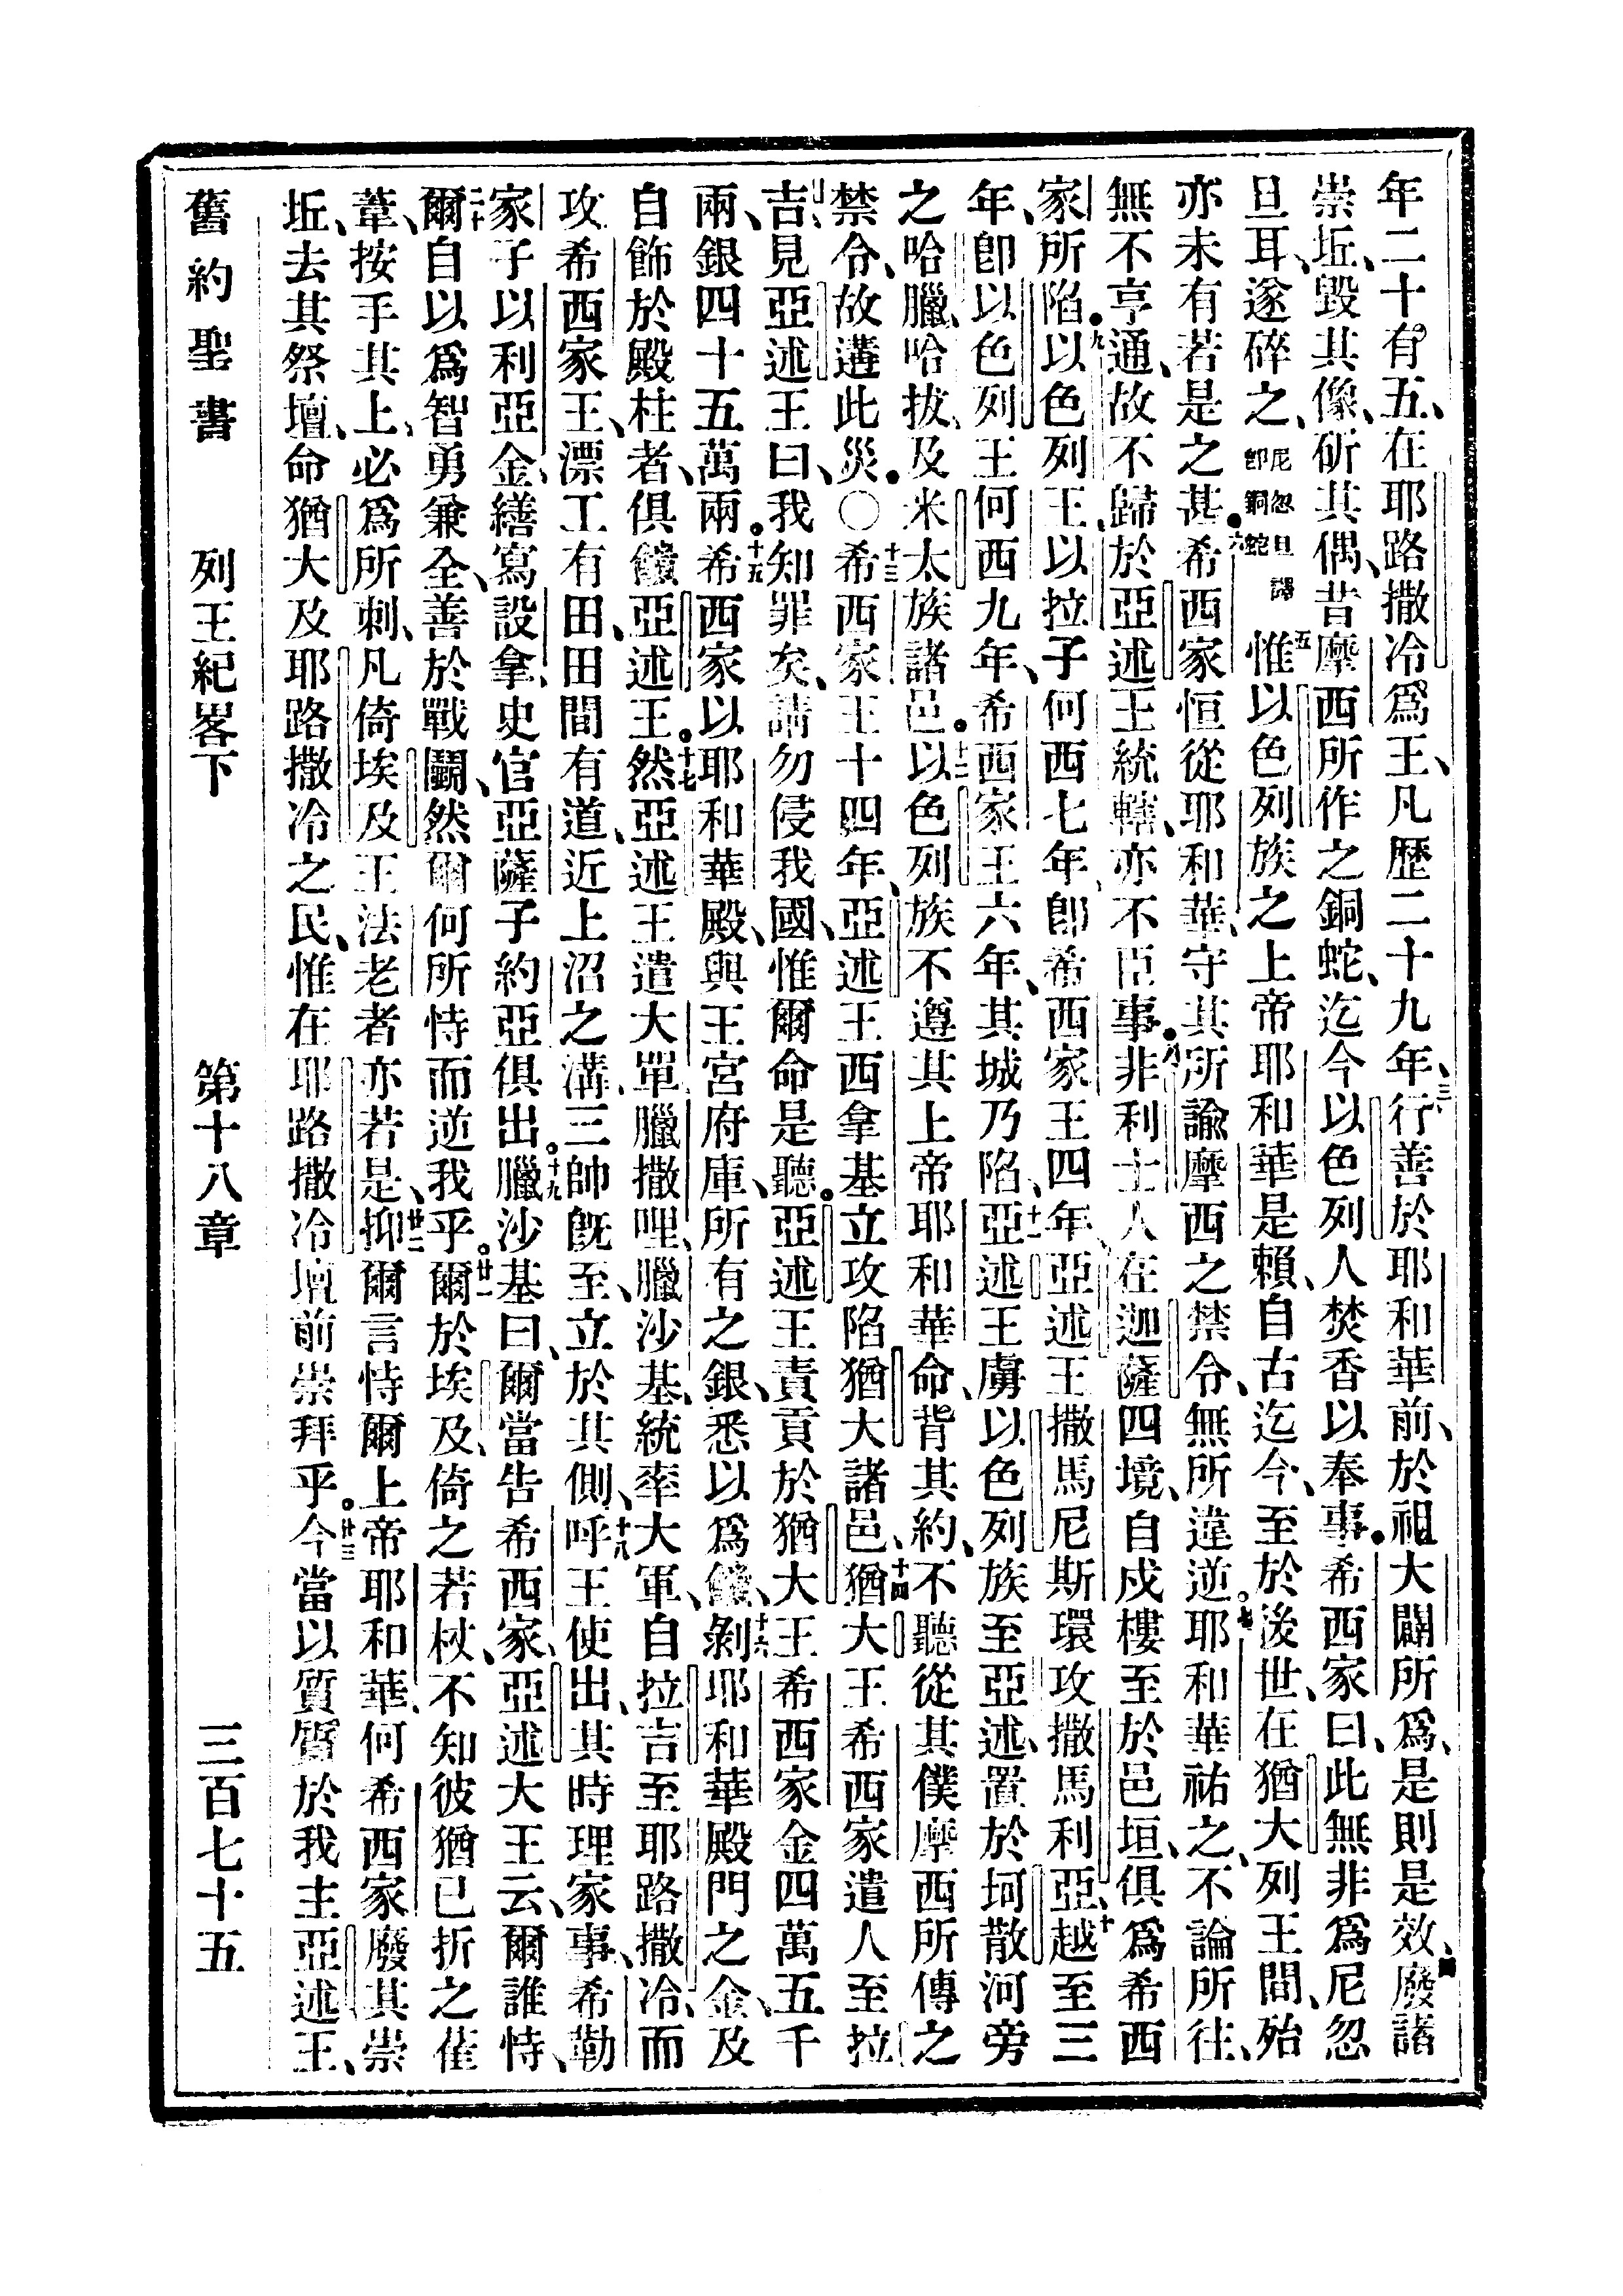 年二十有五、在耶路撒冷爲王、凡歷二十九年、三行善於耶和華前、於祖大闢所爲、是則是效、四廢諸
崇坵、毀其像、斫其偶、昔摩西所作之銅蛇、迄今以色列人焚香以奉事。希西家曰、此無非爲尼忽
旦耳、遂碎之、尼忽旦譯卽銅蛇五惟以色列族之上帝耶和華是賴、自古迄今、至於後世、在猶大列王間、殆
亦未有若是之甚。六希西家恒從耶和華、守其所諭摩西之禁令、無所違逆。七耶和華祐之、不論所往、
無不亨通、故不歸於亞述王統轄、亦不臣事。八非利士人在迦薩四境、自戍樓至於邑垣、俱爲希西
家所陷。九以色列王、以拉子何西七年、卽希西家王四年、亞述王撒馬尼斯環攻撒馬利亞、十越至三
年、卽以色列王何西九年、希西家王六年、其城乃陷、十一亞述王虜以色列族至亞述、置於坷散河旁
之哈臘、哈拔、及米太族諸邑。十二以色列族不遵其上帝耶和華命、背其約、不聽從其僕摩西所傳之
禁令、故遘此災。〇十三希西家王十四年、亞述王西拿基立攻陷猶大諸邑、十四猶大王希西家遣人至拉
吉、見亞述王曰、我知罪矣、請勿侵我國、惟爾命是聽。亞述王責貢於猶大王希西家金四萬五千
兩、銀四十五萬兩。十五希西家以耶和華殿、與王宮府庫、所有之銀、悉以爲餽、十六剝耶和華殿門之金、及
自飾於殿柱者、俱餽亞述王。十七然亞述王遣大單臘撒哩、臘沙基、統率大軍、自拉吉至耶路撒冷、而
攻希西家王、漂工有田、田間有道、近上沼之溝、三帥旣至、立於其側、十八呼王使出、其時理家事、希勒
家子以利亞金、繕寫設拿、史官亞薩子約亞俱出。十九臘沙基曰、爾當告希西家、亞述大王云、爾誰恃、
二十爾自以爲智勇兼全、善於戰鬭、然爾何所恃而逆我乎。廿一爾於埃及、倚之若杖、不知彼猶已折之萑
葦、按手其上、必爲所刺、凡倚埃及王法老者亦若是、廿二抑爾言恃爾上帝耶和華、何希西家廢其崇
坵、去其祭壇、命猶大及耶路撒冷之民、惟在耶路撒冷壇前崇拜乎。廿三今當以質質於我主亞述王、
舊約聖書 列王紀畧下 第十八章 三百七十五